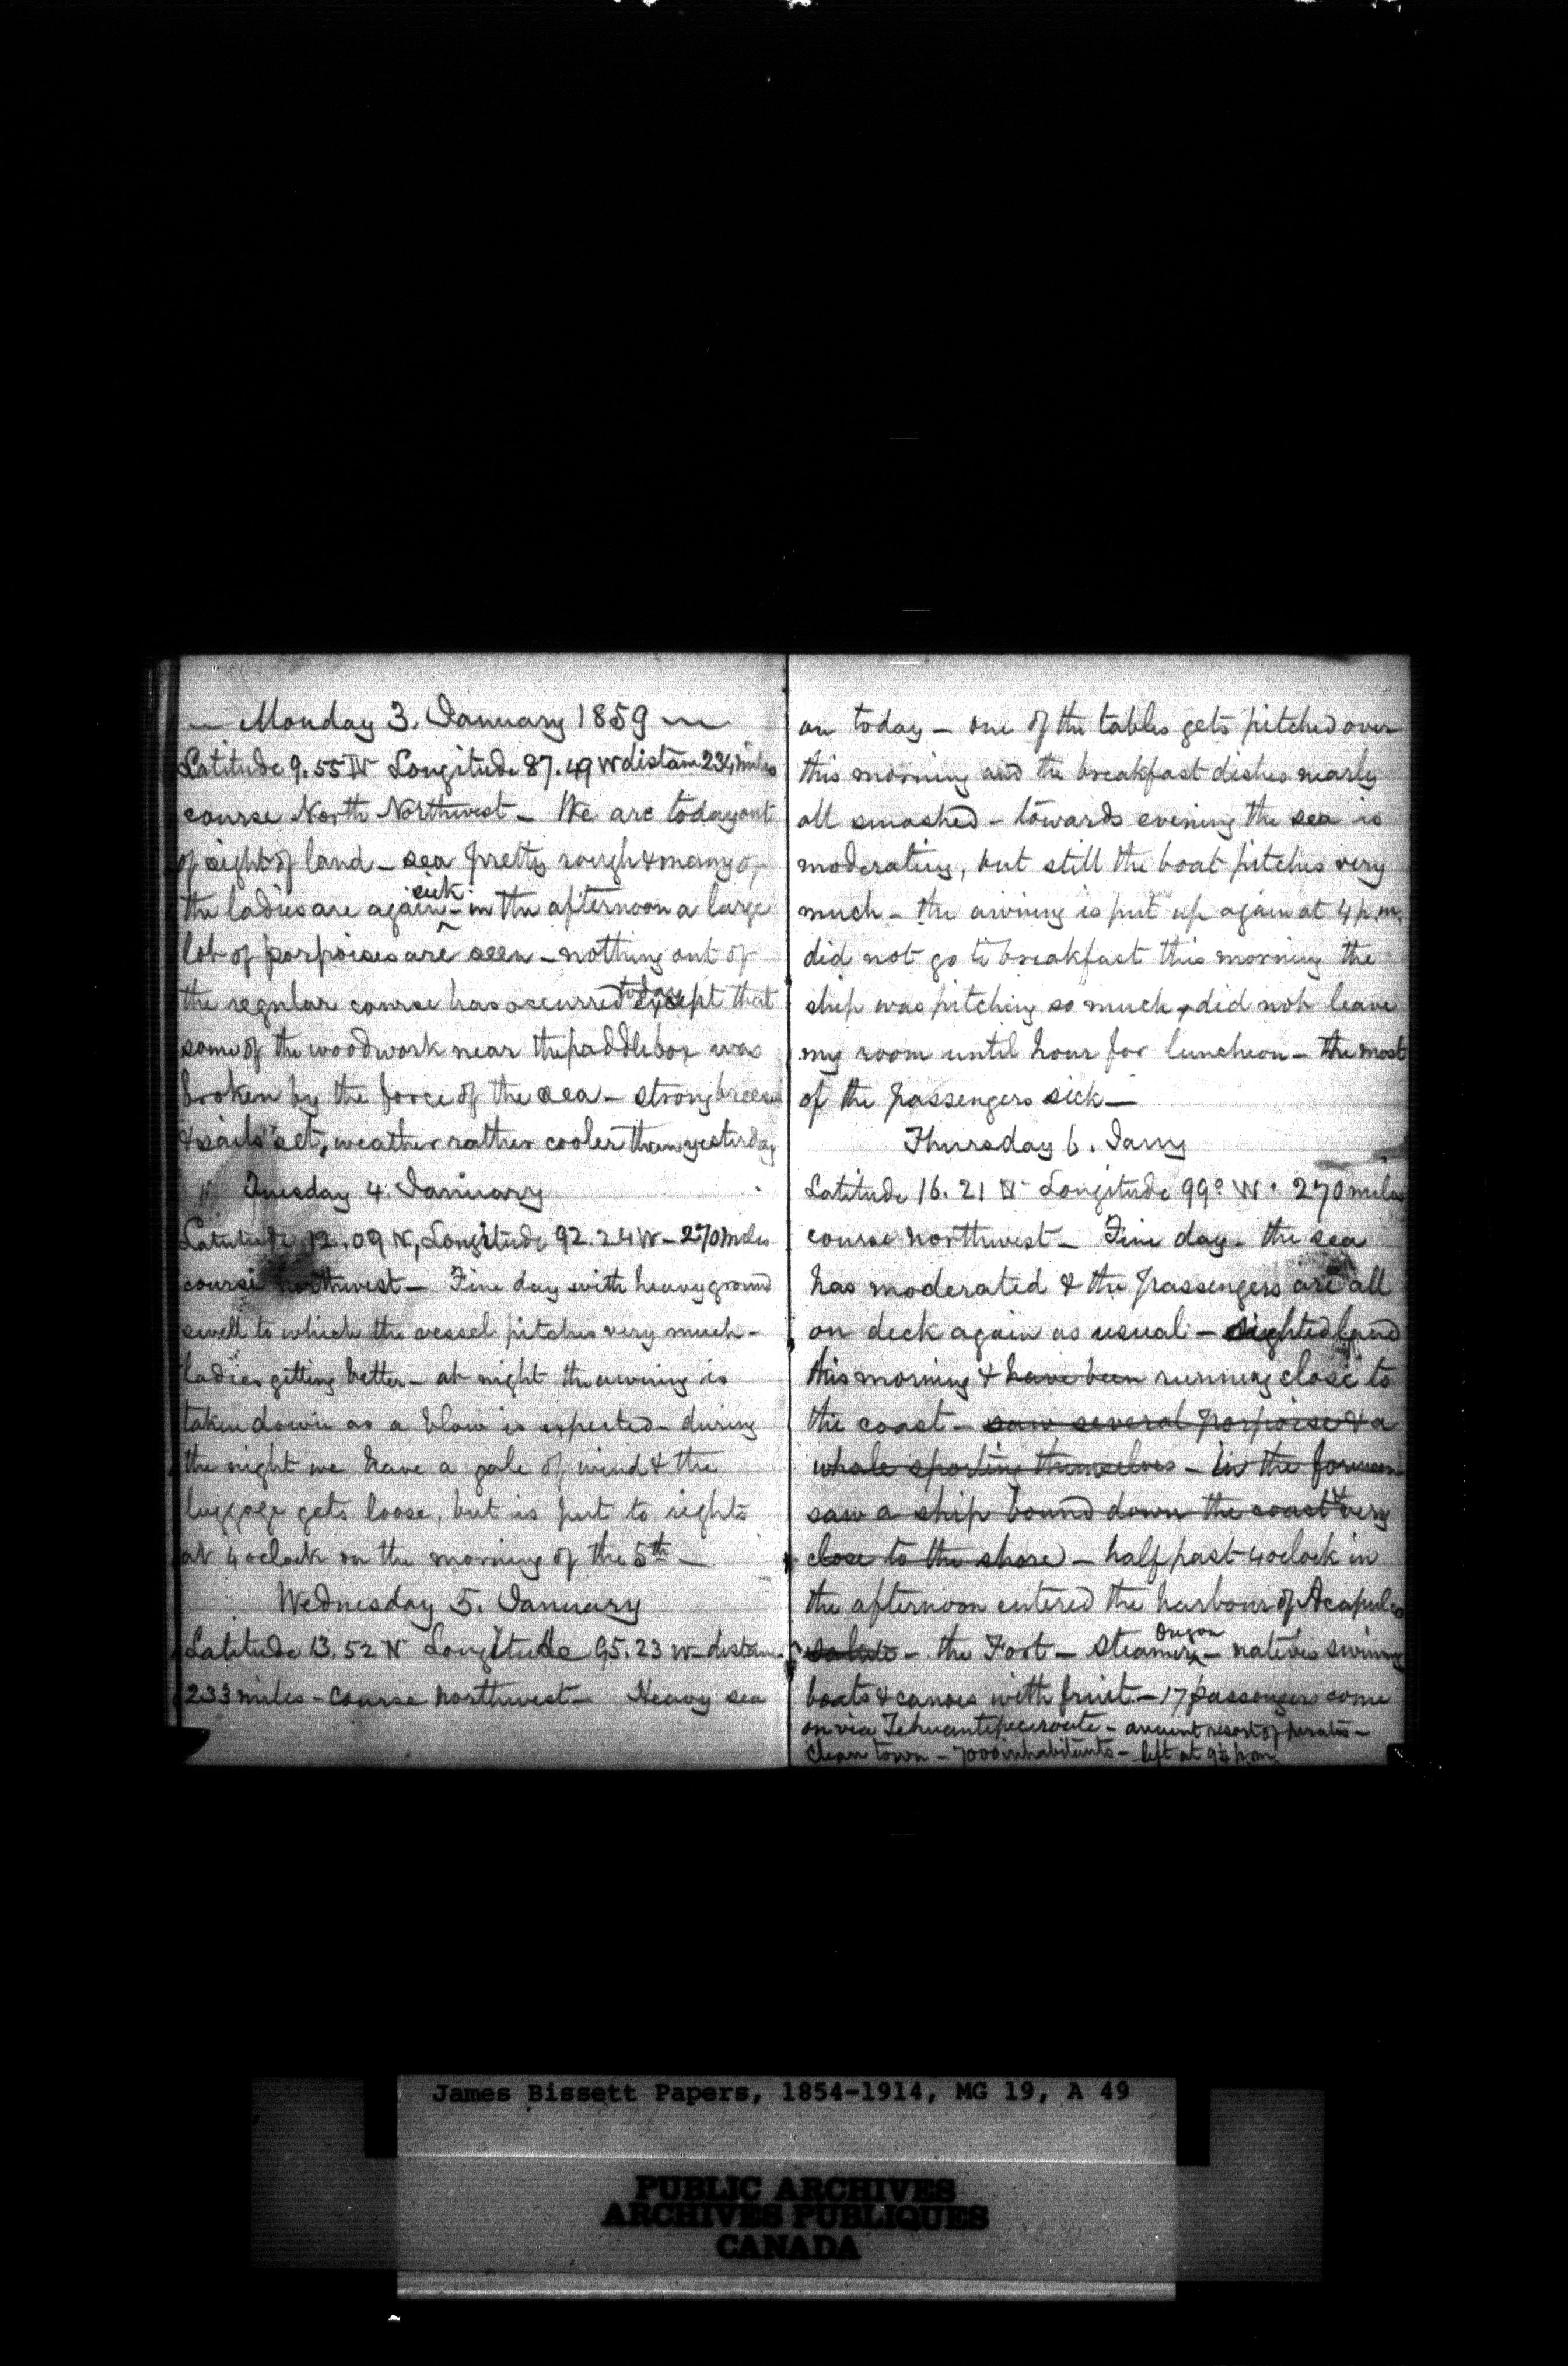 — Monday 3. January 1859 —
Latitude 9.55 N Longitude 87.49 W distam 234 miles
course North Northwest — We are today out
of sight of land — sea pretty rough & many of
the ladies are again sick — in the afternoon a large
lot of porpoises are seen — nothing out of
the regular course has occurred today except that
some of the woodwork near the paddlebox was
broken by the force of the sea — strong breeze
& sails set, weather rather cooler than yesterday
Tuesday 4. January
Latitude 12.09 N, Longitude 92.24 W — 270 miles
course northwest — Fine day with heavy ground
swell to which the vessel pitches very much —
ladies getting better — at night the awning is
taken down as a blow is expected — during
the night we have a gale of wind & the
luggage gets loose, but is put to rights
at 4 oclock on the morning of the 5th —
Wednesday 5. January
Latitude 13.52 N Longitude 95.23 W — distam
233 miles — course northwest — Heavy sea
on today — one of the tables gets pitched over
this morning and the breakfast dishes nearly
all smashed — towards evening the sea is
moderating, but still the boat pitches very
much — the awning is put up again at 4 p.m.
did not go to breakfast this morning the
ship was pitching so much, did not leave
my room until hour for luncheon — the most
of the passengers sick —
Thursday 6. Jany
Latitude 16.21 N Longitude 99° W. 270 miles
course northwest — Fine day — the sea
has moderated & the passengers are all
on deck again as usual — sighted land
this morning & have been running close to
the coast — saw several porpoise & a
whale sporting themselves — in the forenoon
saw a ship bound down the coast & very
close to the shore — half past 4 oclock in
the afternoon entered the harbour of Acapulco
salute — the Fort — Steamer Oregon — natives swimming
boats & canoes with fruit — 17 passengers come
on via Tehuantepec route — ancient resort of pirates —
Clean town — 7000 inhabitants — left at 9¼ p.m.
James Bissett Papers, 1854-1914, MG 19, A 49
PUBLIC ARCHIVES
ARCHIVES PUBLIQUES
CANADA